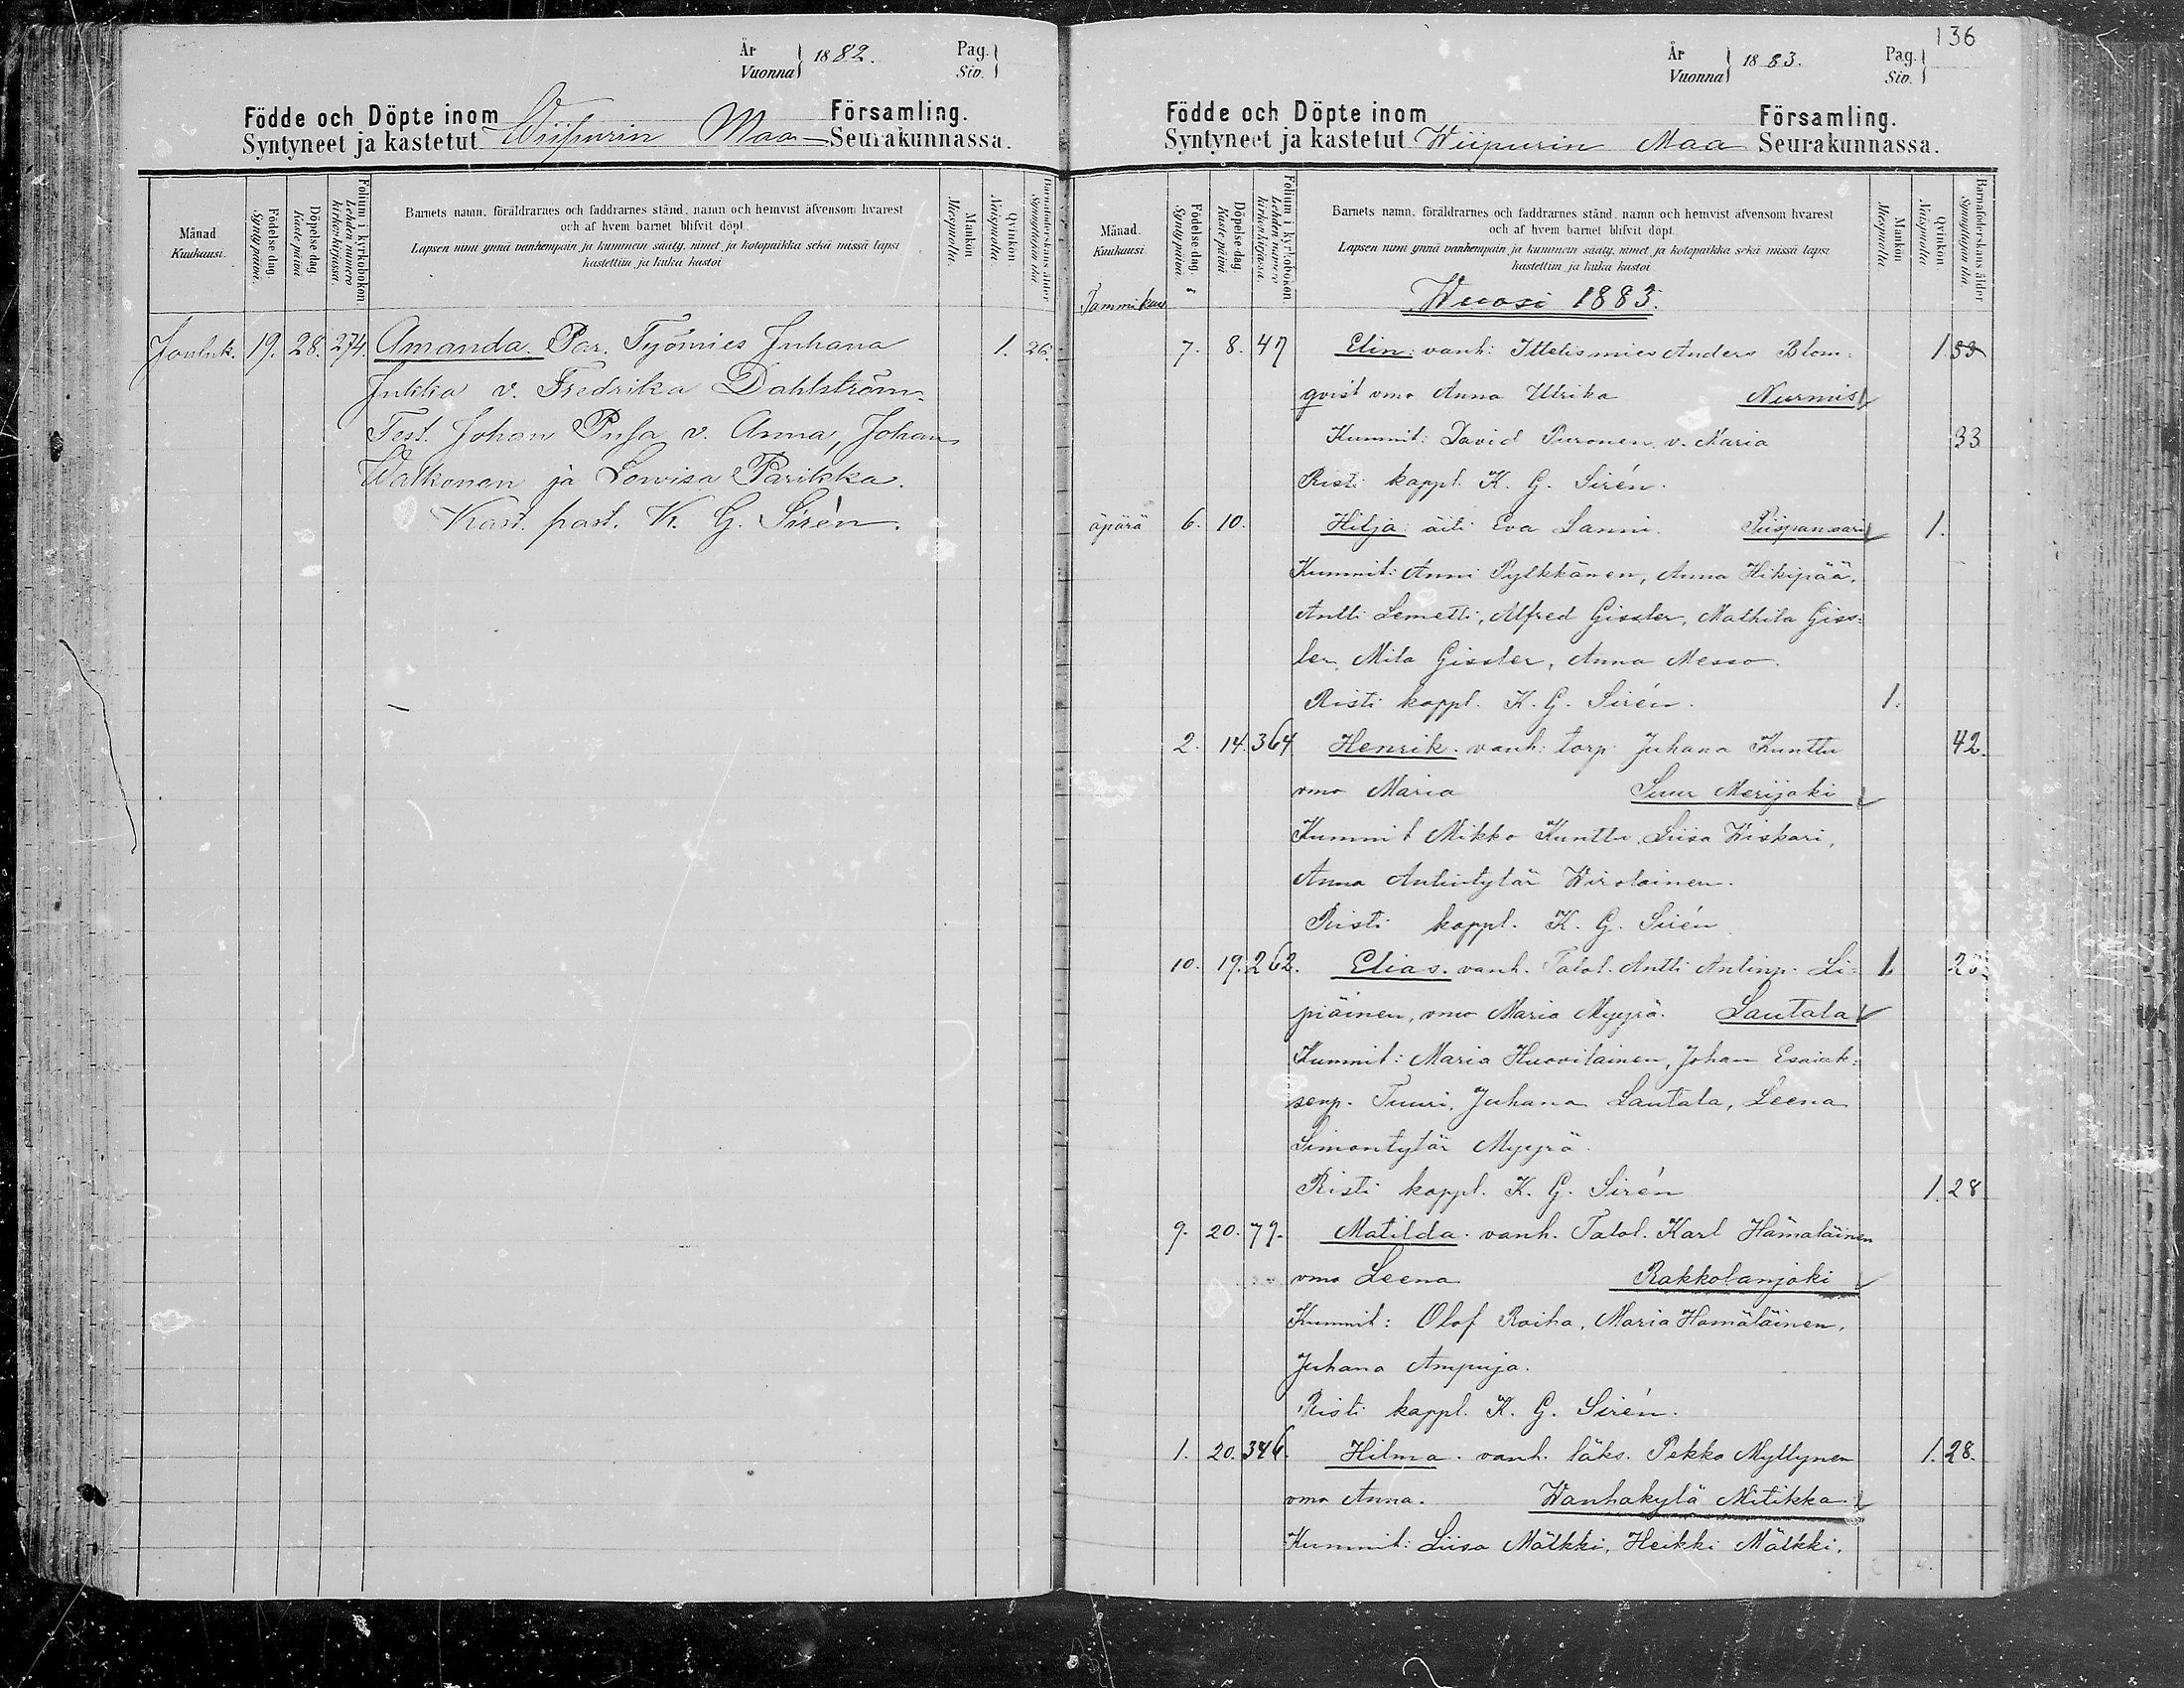 År
Vuonna
1882.
Pag.
Siv.
Födde och Döpte inom
Församling.
Syntyneet ja kastetut Wiipurin Maa Seurakunnassa.
Månad
Kuukausi.
Födelse dag.
Synty päivä.
Döpelse dag
Kaste päivä
Folium i kyrkobokon.
Lehden numero
kirkonkirjassa.
Barnets namn, föräldrarnes och faddrarnes stånd, namn och hemvist äfvensom hvarest
och af hvem barnet blifvit döpt.
Lapsen nimi ynnä vanhempain ja kummein sääty, nimet ja kotopaikka sekä missä lapsi
kastettiin ja kuka kastoi
Mankön
Miespuolia.
Qvinkön.
Naispuolia
Barnaföderskans ålder
Synnyttäjän ikä
Jouluk. 19. 28. 274. Amanda. Par. Työmies Juhana 1. 26.
Jukka v. Fredrika Dahlström.
Test. Johan Pusa v. Anna, Johan
Walkonen ja Lowisa Parikka.
Kast. past. K. G. Sirén.
136
År
Vuonna
1883.
Pag.
Siv.
Födde och Döpte inom
Församling.
Syntyneet ja kastetut Wiipurin Maa Seurakunnassa.
Månad.
Kuukausi
Födelse dag.
Synty päivä.
Döpelse dag
Kaste päivä
Folium i kyrkobokon
Lehden numero
kirkonkirjassa.
Barnets namn, föräldrarnes och faddrarnes stånd, namn och hemvist äfvensom hvarest
och af hvem barnet blifvit döpt.
Lapsen nimi ynnä vanhempain ja kummein sääty, nimet ja kotopaikka sekä missä lapsi
kastettiin ja kuka kastoi
Mankön
Miespuolia
Qvinkön
Naispuolia
Barnaföderskans ålder
Synnyttäjän ikä
Tammikuu " Wuosi 1883.
7. 8. 47 Elin: vanh: Ittelismies Anders Blom- 1 33
qvist vmo Anna Ulrika Nurmis
Kummit: David Puronen v. Maria 33
Risti kappl. K. G. Sirén.
äpärä 6. 10. Hilja äiti Eva Lanni. Piispansaari 1.
Kummit: Anni Pylkkänen, Anna Hikipää,
Antti Lemetti, Alfred Gissler, Mathila Giss-
ler, Mila Gissler, Anna Messo.
Risti kappl. K. G. Sirén. 1.
2. 14. 364 Henrik. vanh: torp. Juhana Kunttu 42.
vmo Maria Suur Merijoki
Kummit Mikko Kunttu, Liisa Wiskari,
Anna Antintytär Wirolainen.
Risti kappl. K. G. Sirén
10. 19. 262. Elias. vanh. Talol. Antti Antinp. Li- 1.
piäinen, vmo Maria Myyrä. Lautala
Kummit: Maria Huovilainen, Johan Esaiak-
senp. Tuuri, Juhana Lautala, Leena
Simontytär Myyrä.
Risti kappl. K. G. Sirén 1. 28
9. 20. 79. Matilda. vanh. Talol. Karl Hämäläinen
vmo Leena Rakkolanjoki
Kummit: Olof Raiha, Maria Hämäläinen,
Juhana Ampuja.
Risti kappl. K. G. Sirén.
1. 20. 346. Hilma. vanh. läks. Pekka Myllynen 1. 28.
vmo Anna. Wanhakylä Nitikka
Kummit: Liisa Mälkki, Heikki Mälkki,